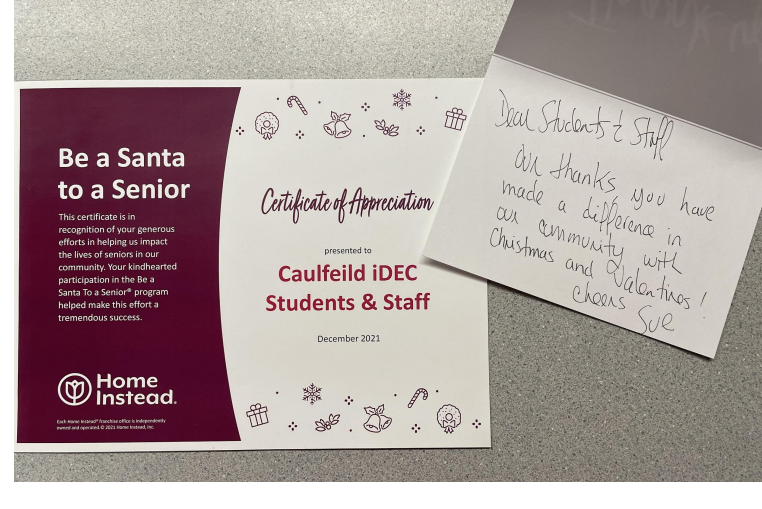 Be a Santa
to a Senior
This certificate is in
recognition of your generous
efforts in helping us impact
the lives of seniors in our
community. Your kindhearted
participation in the Be a
Santa To a Senior® program
helped make this effort a
tremendous success.
Home
Instead.
Each Home Instead® franchise office is independently
owned and operated. © 2021 Home Instead, Inc.
Certificate of Appreciation
presented to
Caulfeild iDEC
Students & Staff
December 2021
Dear Students & Staff
Our thanks, you have
made a difference in
our community with
Christmas and Valentines!
cheers
Sue